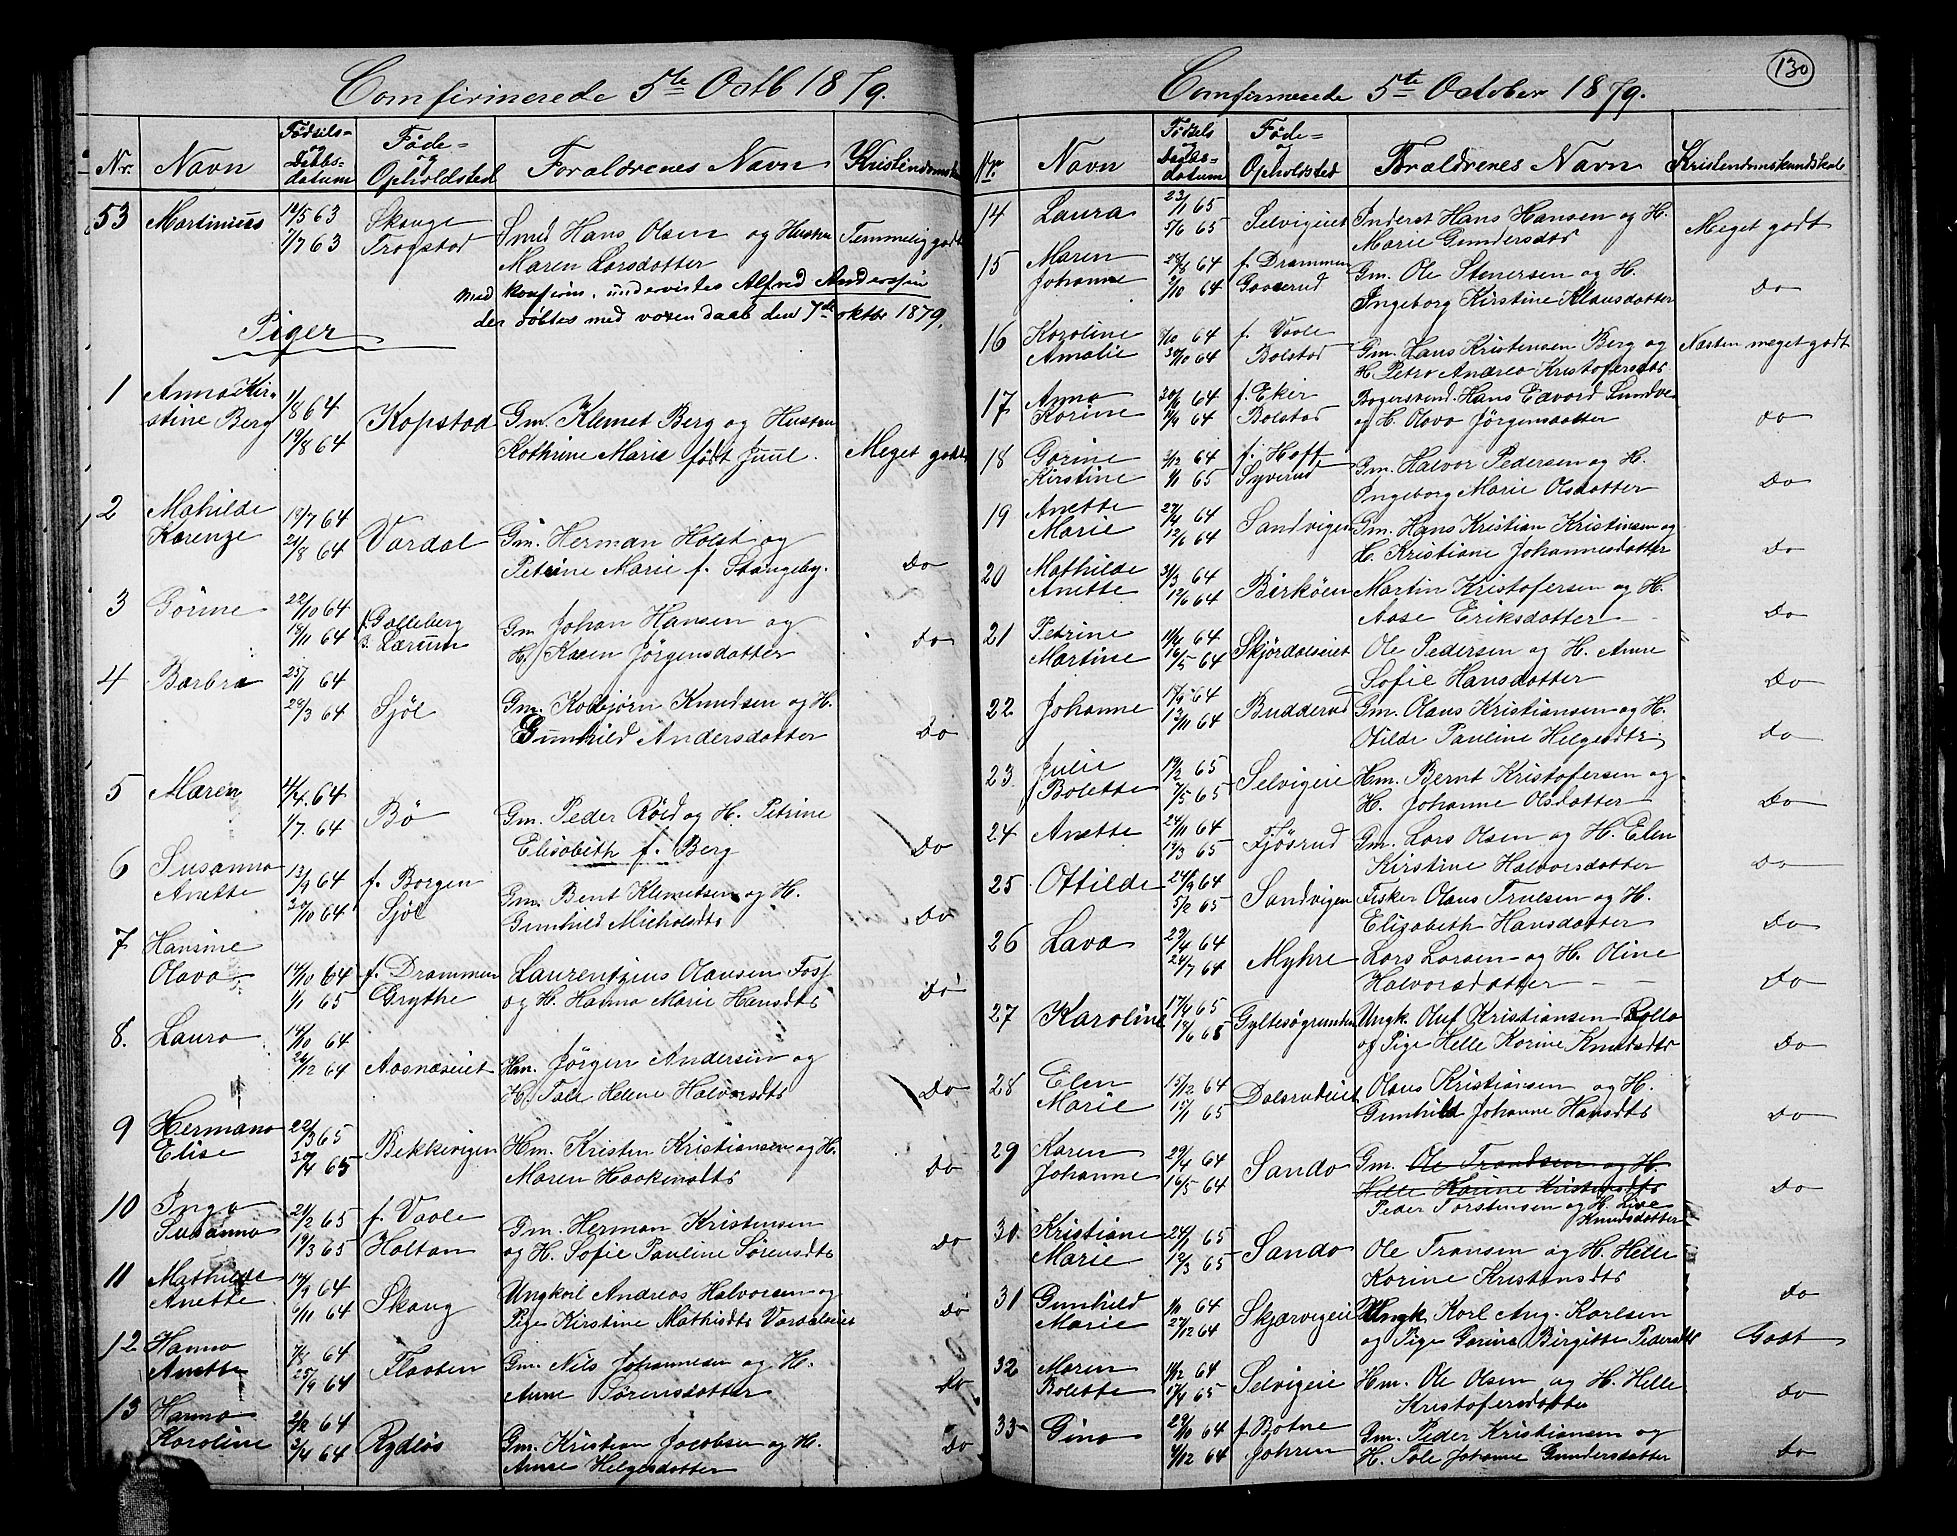 Comfirmerede 5te Octb 1879.
Nr. Navn Fødsels- og Daabs- datum Føde- og Opholdsted Forældrenes Navn Kristendomsk
53 Martinius 12/5 63 Skauge Smed Hans Olsen og Hustru Temmelig godt
1/7 63 Trogstad Maren Larsdatter
med konfirm. undervistes Alfred Anderssen
der döbtes med voxen daab den 7de oktbr 1879.
Piger
1 Anna Kir- 1/8 64 Kopstad Gm. Klemet Berg og Hustru
stine Berg 19/8 64 Kathrine Marie født Juul. Meget godt
2 Mathilde 19/7 64 Vardal Gm. Herman Holst og
Karenze 21/8 64 Petrine Marie f. Stangeby. Do
3 Gorine 22/10 64 f. Galleberg Gm Johan Hansen og
19/11 64 Lærum H. Karen Jörgensdatter Do
4 Barbra 25/1 64 Sjöl Gm. Kolbjørn Knudsen og H.
29/3 64 Gunhild Andersdatter Do
5 Maren 4/4 64 Bø Gm. Peder Röed og H. Petrine
1/7 64 Elisabeth f. Berg Do
6 Susanna 13/9 64 f. Borgen Gm. Bent Klemetsen og H.
Anette 30/10 64 Sjöl Gunhild Micholsdtr Do
7 Hansine 14/10 64 f. Drammen Laurentzius Olausen Foss
Olava 1/1 65 Grythe og H. Hanna Marie Hansdtr Do
8. Laura 14/10 64 Aasnæseiet Hm. Jörgen Andersen og
26/12 64 H. Tale Helene Halvorsdtr Do
9 Hermana 22/3 65 Bekkevigen Hm. Kristen Kristiansen og H.
Elise 30/4 65 Maren Haakensdtr Do
10 Inga 21/2 65 f. Vaale Gm. Herman Kristensen
Susanna 19/3 65 Holtan og H. Sofie Pauline Sörensdtr Do
11 Mathilde 14/9 64 Skaug Ungkarl Andreas Halvorsen og
Anette 6/11 64 Pige Kirstine Mathisdtr Vardalseiet Do
12 Hanna 7/8 64 Flaaten Gm. Nils Johannesen og H.
Anette 25/9 64 Anne Sörensdatter Do
13 Hanna 2/2 64 Rydlös Gm. Kristian Jacobsen og H.
Karoline 3/4 64 Anne Helgesdatter Do
130
Comfirmerede 5te October 1879.
Nr. Navn Fødsels og Daabs- datum Føde- og Opholdsted Forældrenes Navn Kristendomskundskab
14 Laura 23/1 65 Selvigeiet Inderst Hans Hansen og H.
5/6 65 Marie Gundersdtr Meget godt
15 Maren 28/8 64 f. Drammen Gm. Ole Stenersen og H.
Johanne 9/10 64 Gaaserud Ingeborg Kirstine Klausdatter Do
16 Karoline 9/10 64 f. Vaale Gm. Hans Kristensen Berg og Næsten meget godt
Amalie 30/10 64 Bolstad H. Petra Andrea Kristofersdtr
17 Anna 30/6 64 f. Eker Bagersvend Hans Edvard Lundve
Karine 9/9 64 Bolstad og H. Olava Jörgensdatter Do
18 Gorine 3/12 64 f. Hoff Gm. Halvor Pedersen og H.
Kirstine 1/1 65 Syverud Ingeborg Marie Olsdatter Do
19 Anette 27/4 64 Sandvigen Gm. Hans Kristian Kristinsen og
Marie 12/6 64 H. Kristiane Johannesdatter Do
20 Mathilde 31/3 64 Birköen Martin Kristofersen og H.
Anette 12/6 64 Aase Eriksdatter Do
21 Petrine 14/4 64 Skjördalseiet Ole Pedersen og H. Anne
Martine 16/5 64 Sofie Hansdatter Do
22 Johanne 18/9 64 Budderud Gm. Olaus Kristiansen og H.
13/11 64 Otilde Pauline Helgesdtr Do
23 Julie 19/2 65 Selvigeie Hm. Bernt Kristofersen og
Bolette 7/5 65 H. Johanne Olsdatter Do
24 Anette 24/11 64 Fjösrud Gm. Lars Olsen og H. Elen
12/3 65 Kirstine Halvorsdatter Do
25 Ottilde 24/9 64 Sandvigen Fisker Olaus Trulsen og H.
5/2 65 Elisabeth Hansdatter Do
26 Lava 29/4 64 Myhre Lars Larsen og H. Oline
24/7 64 Halvorsdatter Do
27 Karoline 17/4 65 Gyltesögrunden Ungk. Oluf Kristiansen Rollo
18/6 65 og Pige Helle Karine Knudsdtr Do
28 Elen 15/12 64 Dalsrudeiet Olaus Kristiansen og H.
Marie 15/1 65 Gunhild Johanne Hansdtr Do
29 Karen 29/4 64 Sando Gm. Ole Trondsen og H.
Johanne 16/5 64 Helle Karine Kristensdtr Do
Peder Torstensen og H. Live
Knudsdatter
30. Kristiane 24/1 65 Sando Ole Transen og H. Helle
Marie 12/3 65 Karine Kristensdtr Do
31 Gunhild 1/10 64 Skjærvigeie Ungk. Karl Aug. Karlsen
Marie 27/12 64 og Pige Gorina Birgitte Pedersdtr Godt
32 Maren 14/12 64 Selvigeie Hm. Ole Olsen og H. Helle
Bolette 17/4 65 Kristofersdatter Do
33 Gina 29/10 64 f. Botne Gm. Peder Kristiansen og
4/12 64 Johren H. Tale Johanne Gundersdatter Do